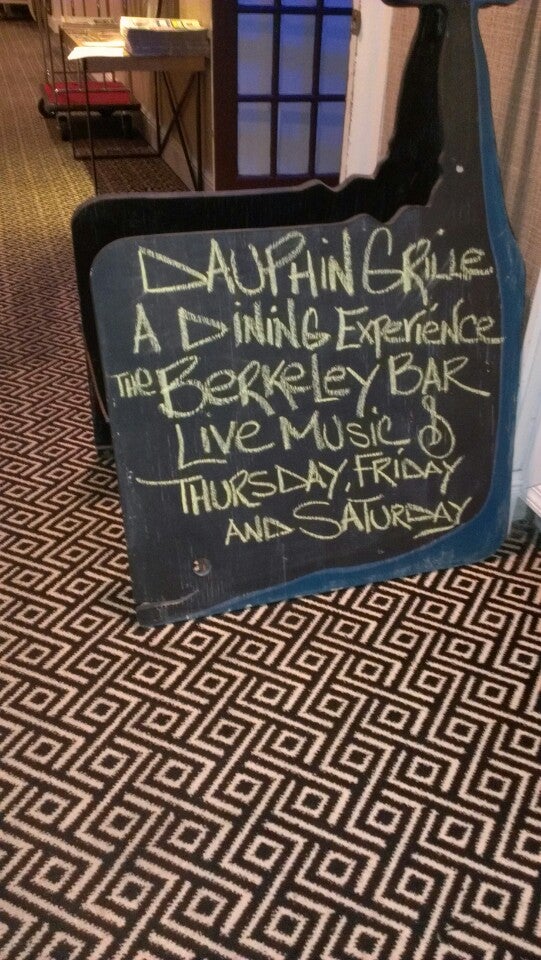 DAUPHIN GRILLE
A DINING EXPERIENCE
THE BERKELEY BAR
LIVE MUSIC
THURSDAY, FRIDAY
AND SATURDAY